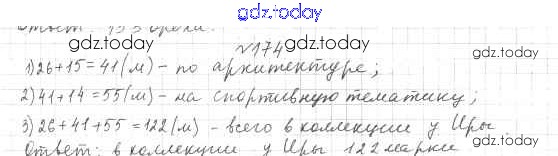 Ответ: 133
gdz.today gdz.today
gdz.today №174 gdz.today
1) 26+15=41(м) - по архитектуре;
2) 41+14=55(м) - на спортивную тематику;
3) 26+41+55=122(м) - всего в коллекции у Иры.
Ответ: в коллекции у Иры 122 марки
gdz.today gdz.today gdz.today